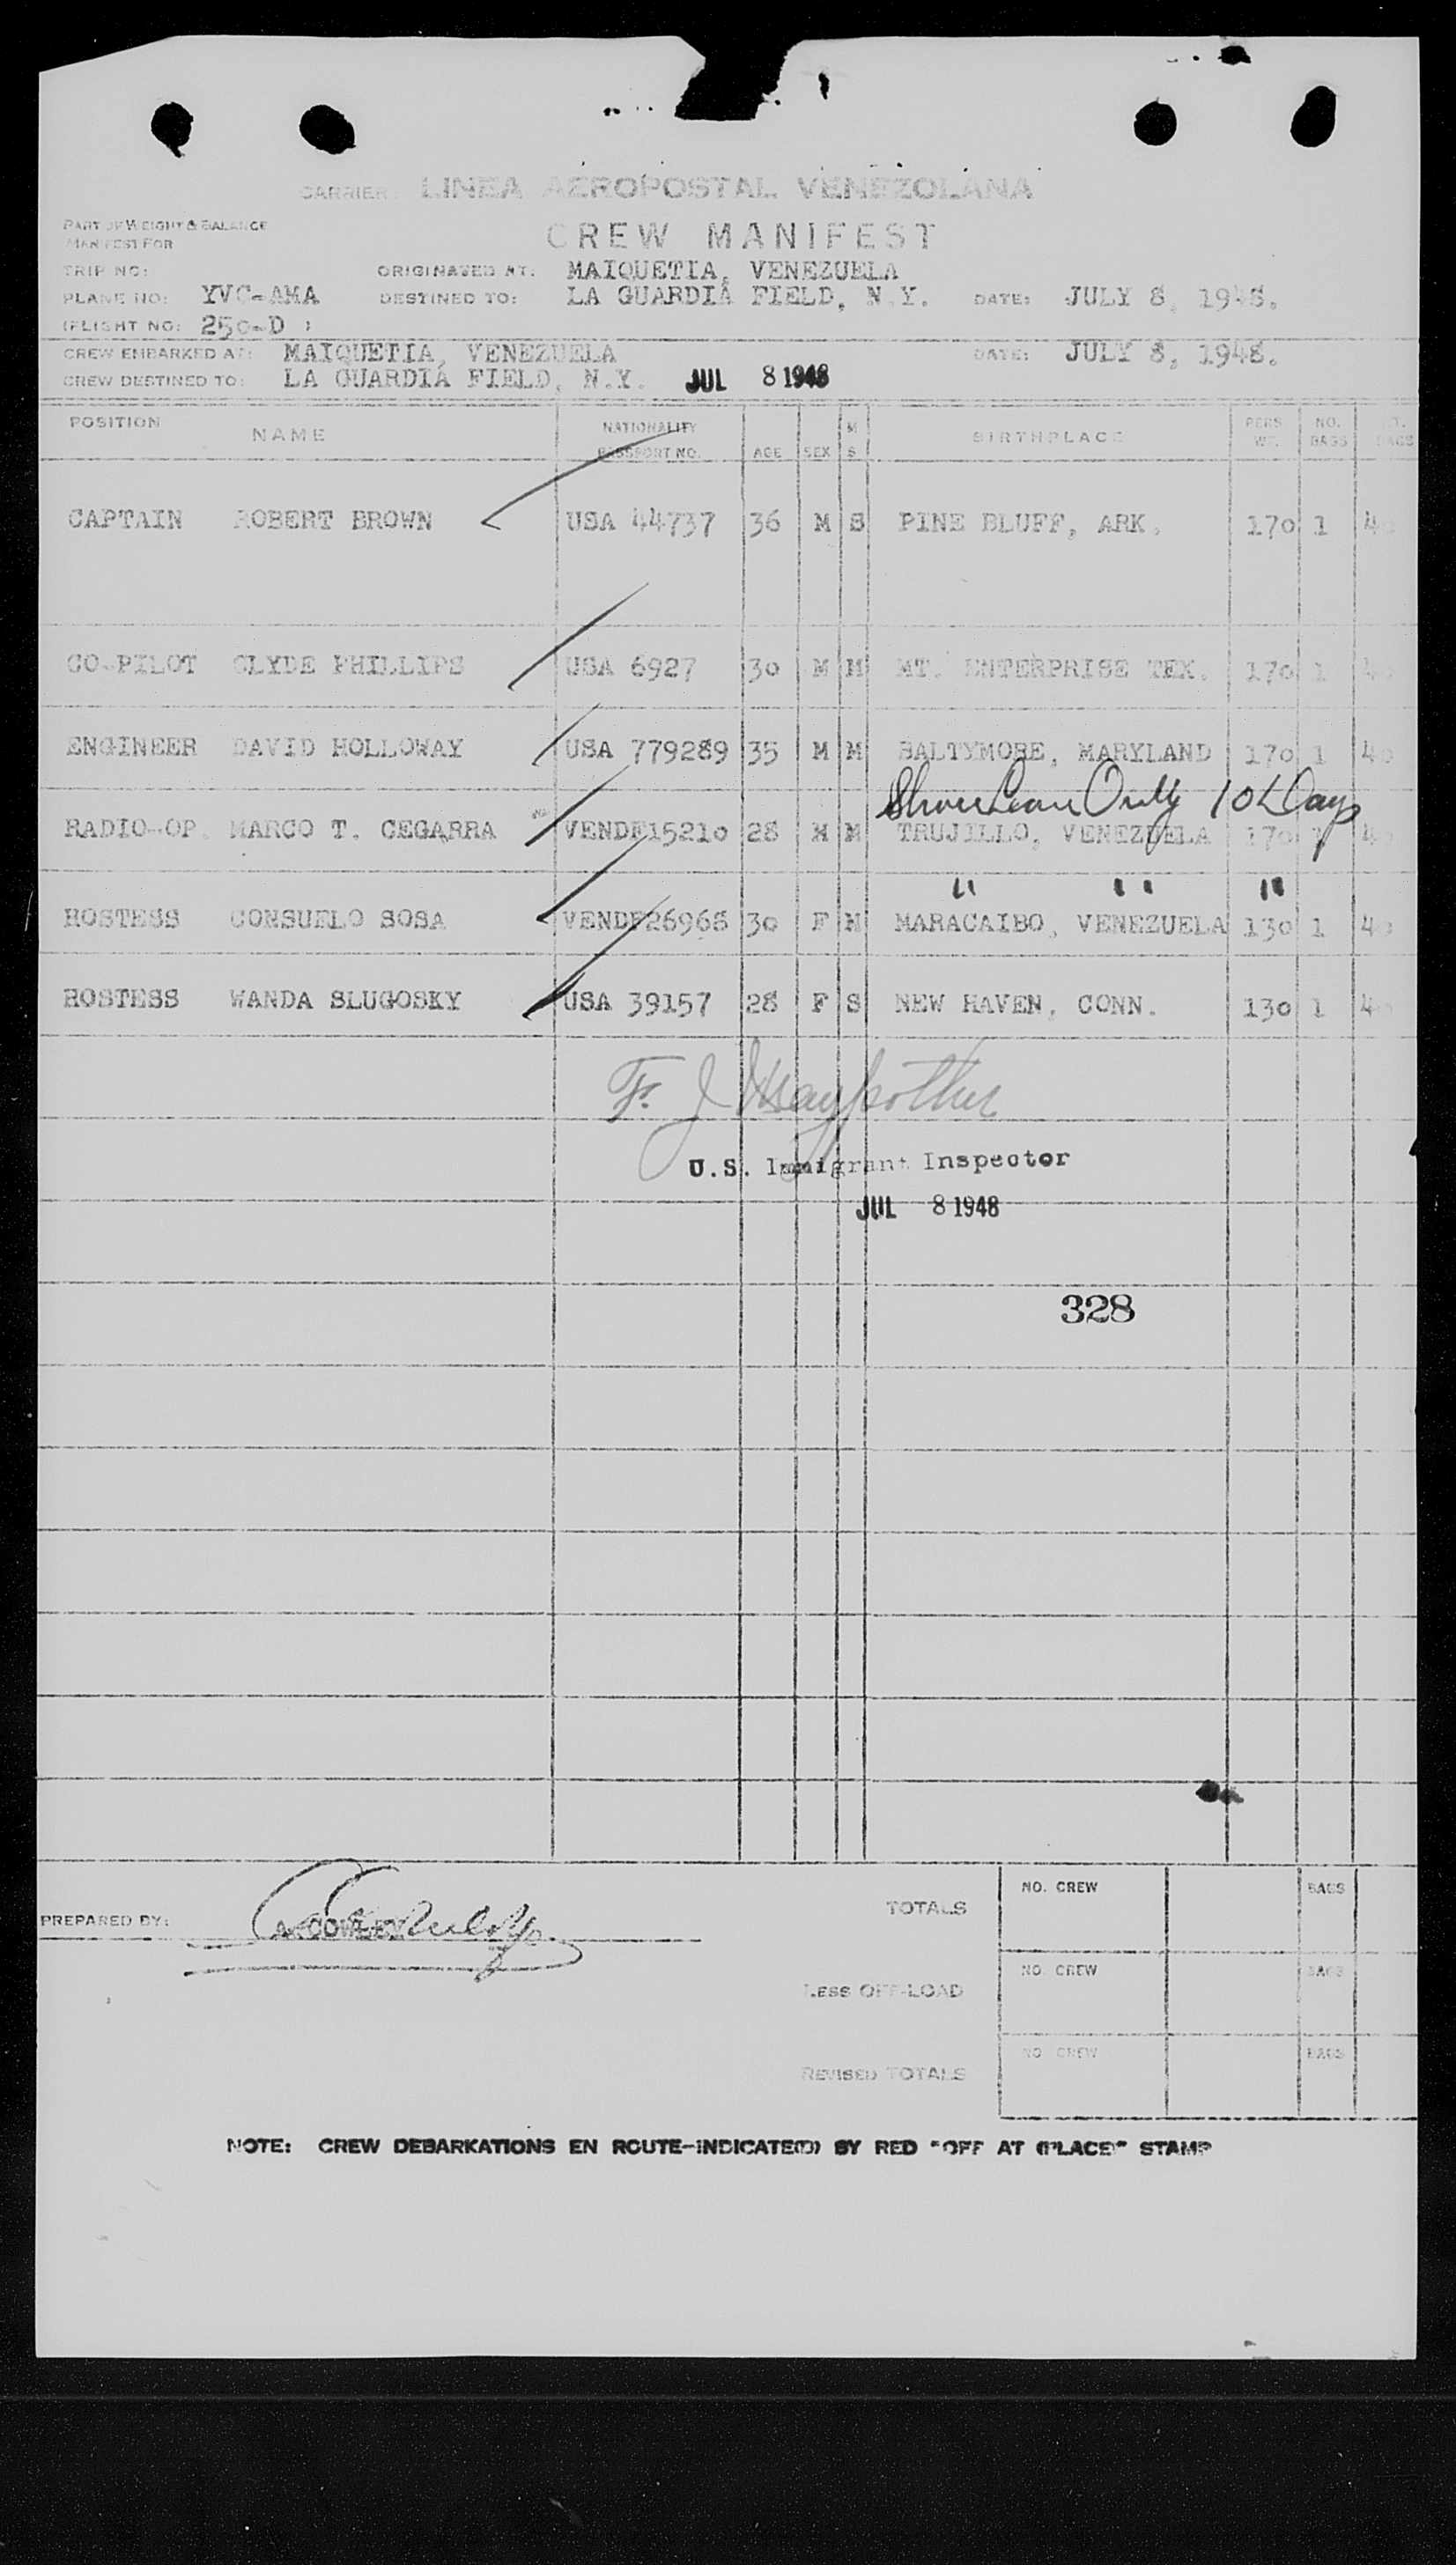 CARRIER: LINEA AEROPOSTAL VENEZOLANA
PART OF WEIGHT & BALANCE
MANIFEST FOR
CREW MANIFEST
TRIP NO: ORIGINATED AT: MAIQUETIA, VENEZUELA
PLANE NO: YVC-AMA DESTINED TO: LA GUARDIA FIELD, N.Y. DATE: JULY 8, 1948.
(FLIGHT NO: 250-D )
CREW EMBARKED AT: MAIQUETIA, VENEZUELA DATE: JULY 8, 1948.
CREW DESTINED TO: LA GUARDIA FIELD, N.Y. JUL 8 1948
POSITION NAME NATIONALITY PASSPORT NO. AGE SEX M S BIRTHPLACE PERS WT. NO. BAGS BAGS
CAPTAIN ROBERT BROWN USA 44737 36 M S PINE BLUFF, ARK. 170 1 40
CO-PILOT CLYDE PHILLIPS USA 6927 30 M M MT. ENTERPRISE TEX. 170 1 40
ENGINEER DAVID HOLLOWAY USA 779289 35 M M BALTYMORE, MARYLAND 170 1 40
Shore Leave Only 10 Days
RADIO-OP. MARCO T. CEGARRA VENDF15210 28 M M TRUJILLO, VENEZUELA 170 1 40
" " "
HOSTESS CONSUELO SOSA VENDF26968 30 F M MARACAIBO, VENEZUELA 130 1 40
HOSTESS WANDA SLUGOSKY USA 39157 28 F S NEW HAVEN, CONN. 130 1 40
F. J.
U.S. Immigrant Inspector
JUL 8 1948
328
PREPARED BY: TOTALS NO. CREW BAGS
LESS OFF-LOAD NO. CREW BAGS
REVISED TOTALS NO. CREW BAGS
NOTE: CREW DEBARKATIONS EN ROUTE-INDICATE(D) BY RED "OFF AT (PLACE)" STAMP